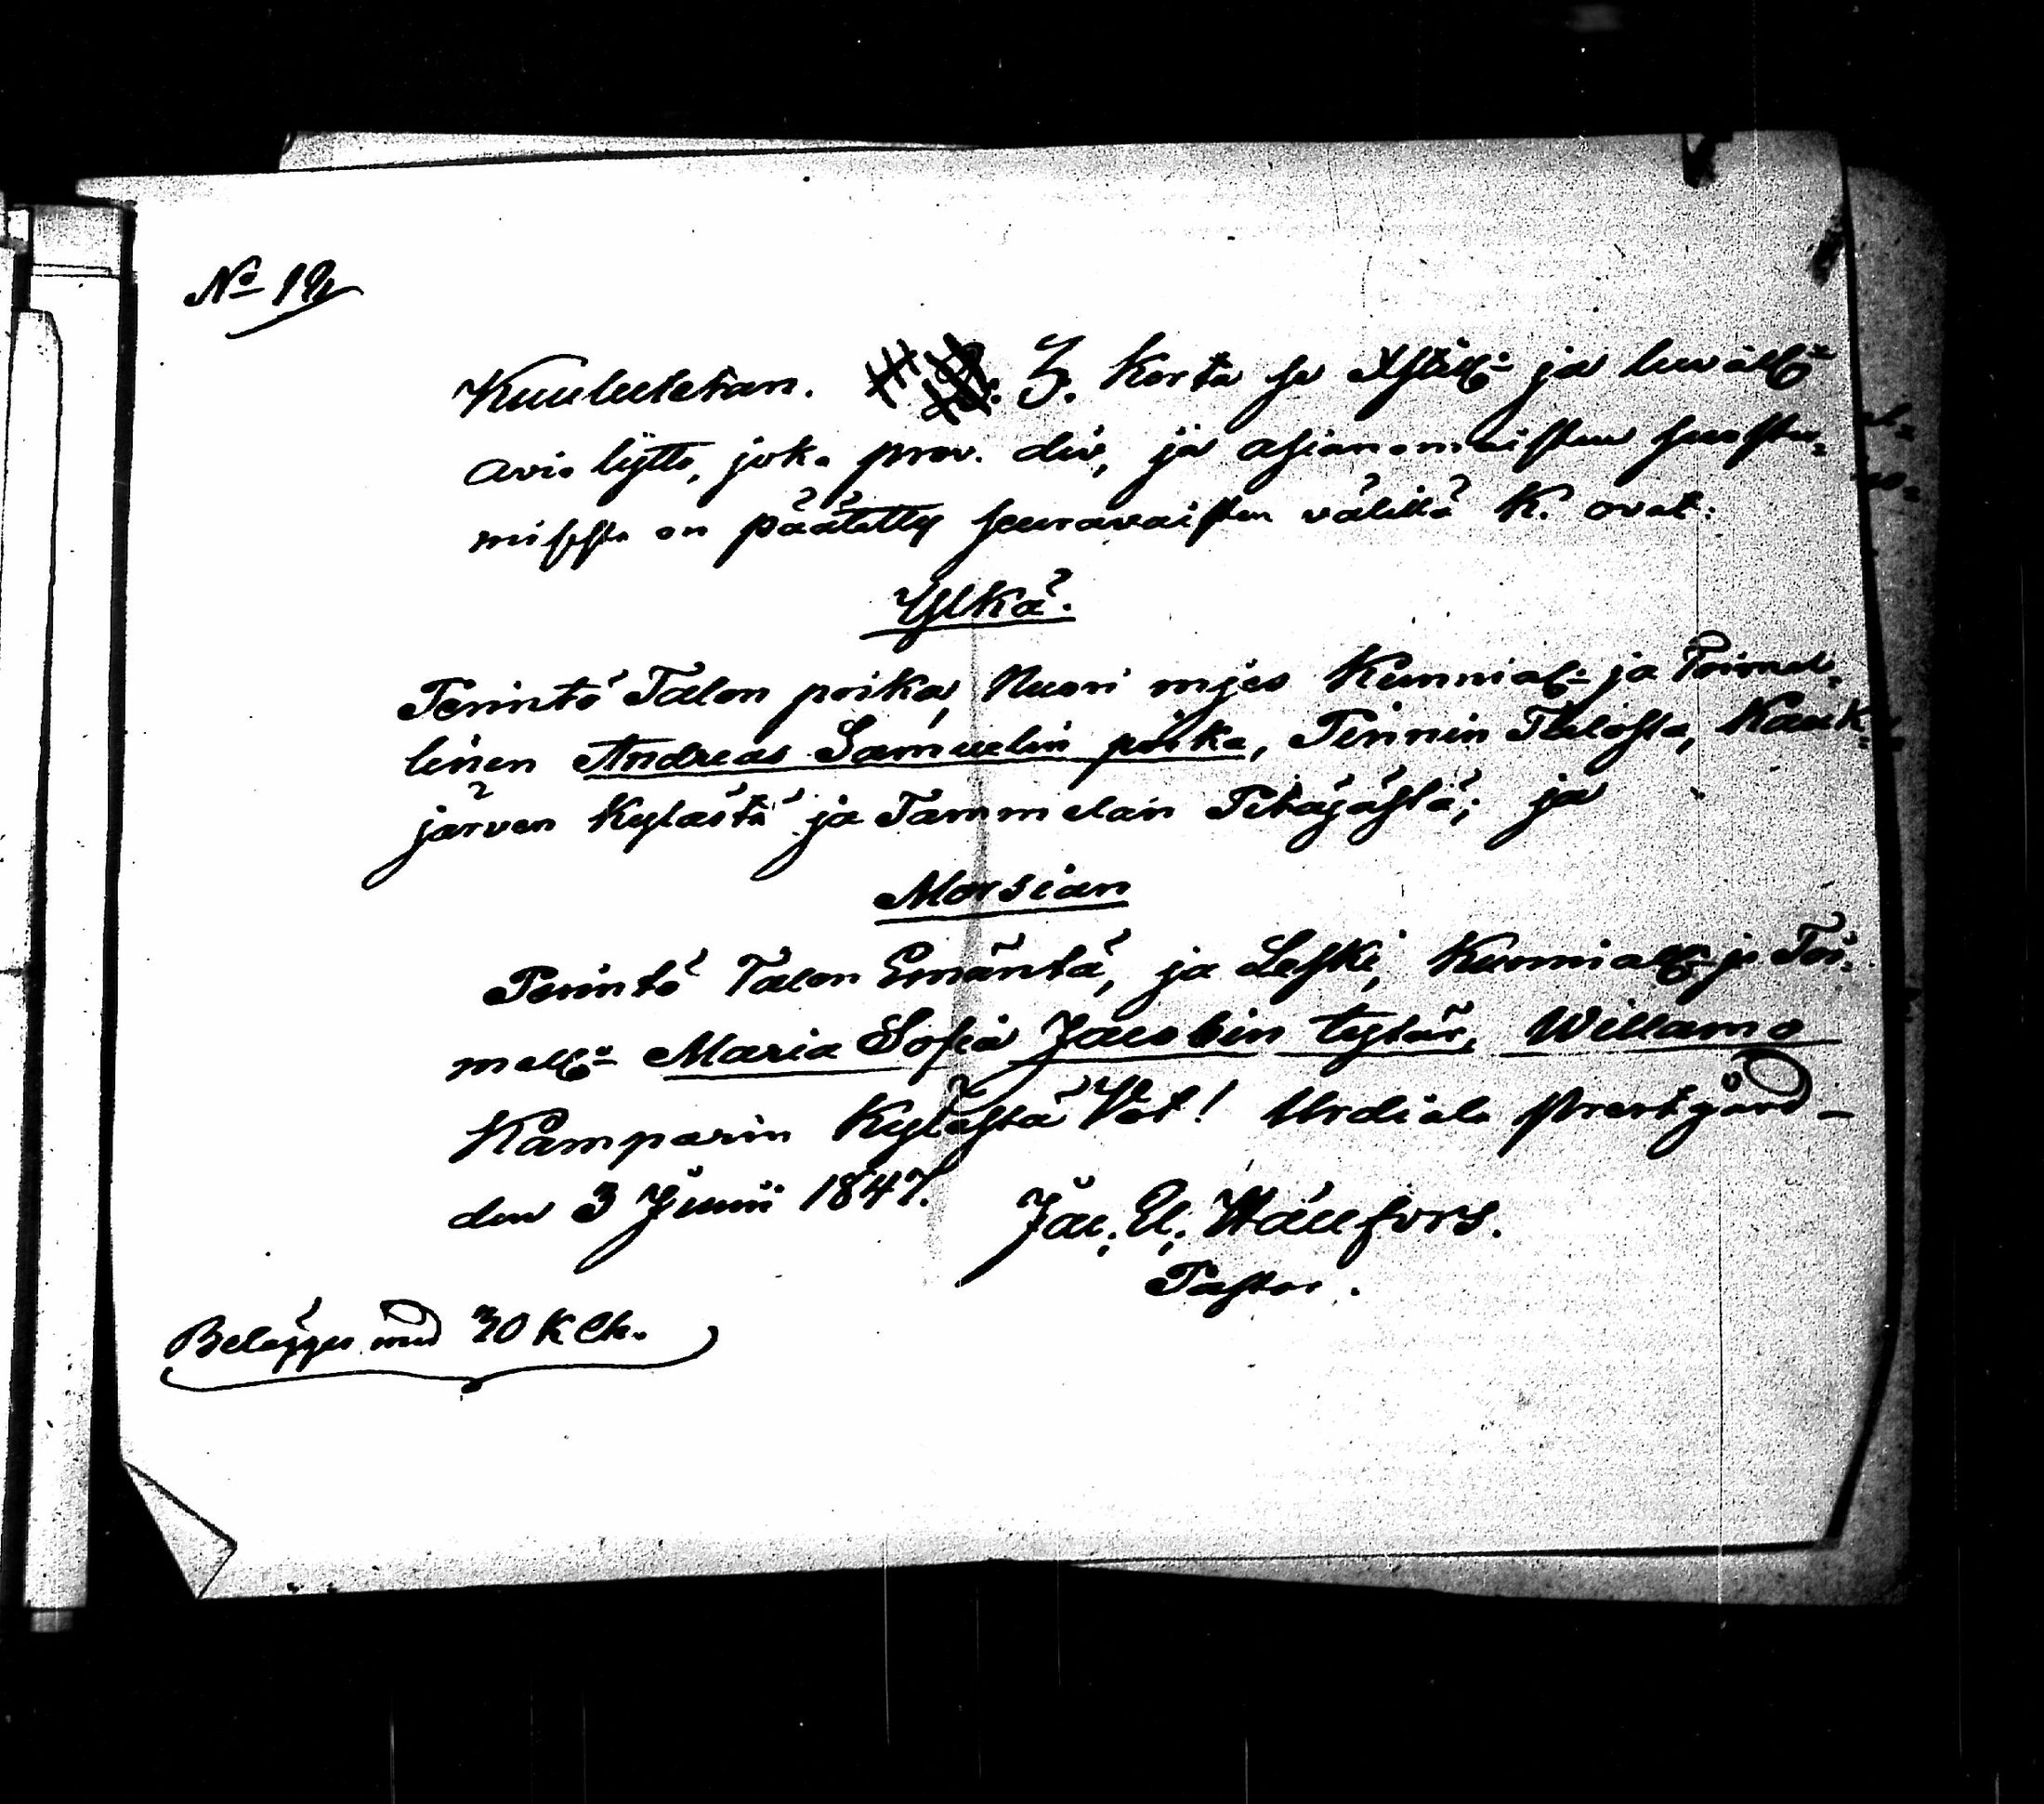 No 19
Kuulutetan. 3. Kerta se Xstill: ja luvallis
avio liitto, joka prov. div, ja asianomaisten suostu„
misesta on päätetty seuravaisten välillä K. ovat:
Ylkä.
Perintö Talon poika, Nuori mjes Kunnial: ja Toimel„
linen Andreas Samuelin poika, Pennin Talosta, Kauk„
järven Kylästä ja Tammelan Pitäjästä; ja
Morsian
Perintö Talon Emäntä, ja Leski, Kunniall: ja Toi„
mell: Maria Sofia Jacobin tytär, Willamo
Kamparin Kylästä Vot! Urdiala Prestgård
den 3 Junii 1847.
Jac. El. Hällfors.
Pastor.
Belägges med 30 K Ch.